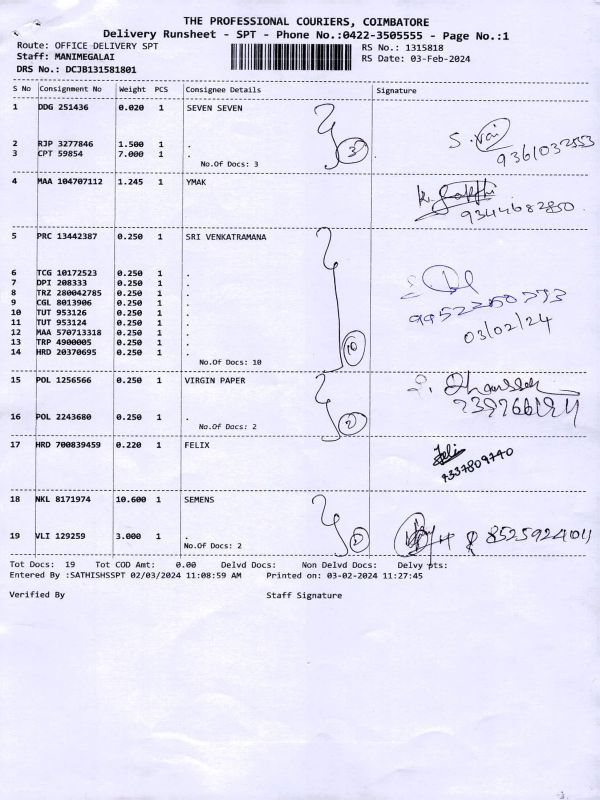 THE PROFESSIONAL COURIERS, COIMBATORE
Delivery Runsheet - SPT - Phone No.:0422-3505555 - Page No.:1
Route: OFFICE DELIVERY SPT
RS No.: 1315818
Staff: MANIMEGALAI
RS Date: 03-Feb-2024
DRS No.: DCJB131581801
S No Consignment No Weight PCS Consignee Details Signature
1 DDG 251436 0.020 1 SEVEN SEVEN
2 RJP 3277846 1.500 1 .
3 CPT 59854 7.000 1 .
No.Of Docs: 3
3
9361032553
4 MAA 104707112 1.245 1 YMAK
9344682850
5 PRC 13442387 0.250 1 SRI VENKATRAMANA
6 TCG 10172523 0.250 1 .
7 DPI 208333 0.250 1 .
8 TRZ 280042785 0.250 1 .
9 CGL 8013906 0.250 1 .
10 TUT 953126 0.250 1 .
11 TUT 953124 0.250 1 .
12 MAA 570713318 0.250 1 .
13 TRP 4900005 0.250 1 .
14 HRD 20370695 0.250 1 .
No.Of Docs: 10
10
03/02/24
15 POL 1256566 0.250 1 VIRGIN PAPER
16 POL 2243680 0.250 1 .
No.Of Docs: 2
2
17 HRD 700839459 0.220 1 FELIX
Felix
9337809740
18 NKL 8171974 10.600 1 SEMENS
19 VLI 129259 3.000 1 .
No.Of Docs: 2
2
8525924011
Tot Docs: 19 Tot COD Amt: 0.00 Delvd Docs: Non Delvd Docs: Delvy pts:
Entered By :SATHISHSSPT 02/03/2024 11:08:59 AM Printed on: 03-02-2024 11:27:45
Verified By Staff Signature